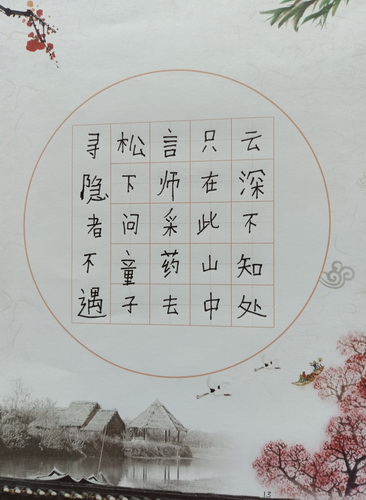 寻隐者不遇
松下问童子
言师采药去
只在此山中
云深不知处
13